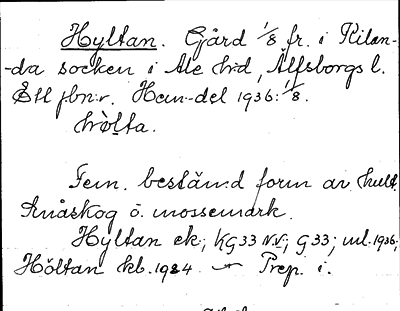 Hyltan. Gård 1/8 fr. i Kilan-
-da socken i Ale hrd, Älfsborgs l.
Ett jbnr. Hem-del 1936: 1/8.
hòlta.
Fem. bestämd form av hult.
Småskog o. mossemark.
Hyltan ek; KG33 NV; G33; ml. 1936;
Höltan kb. 1924 Prep. i.